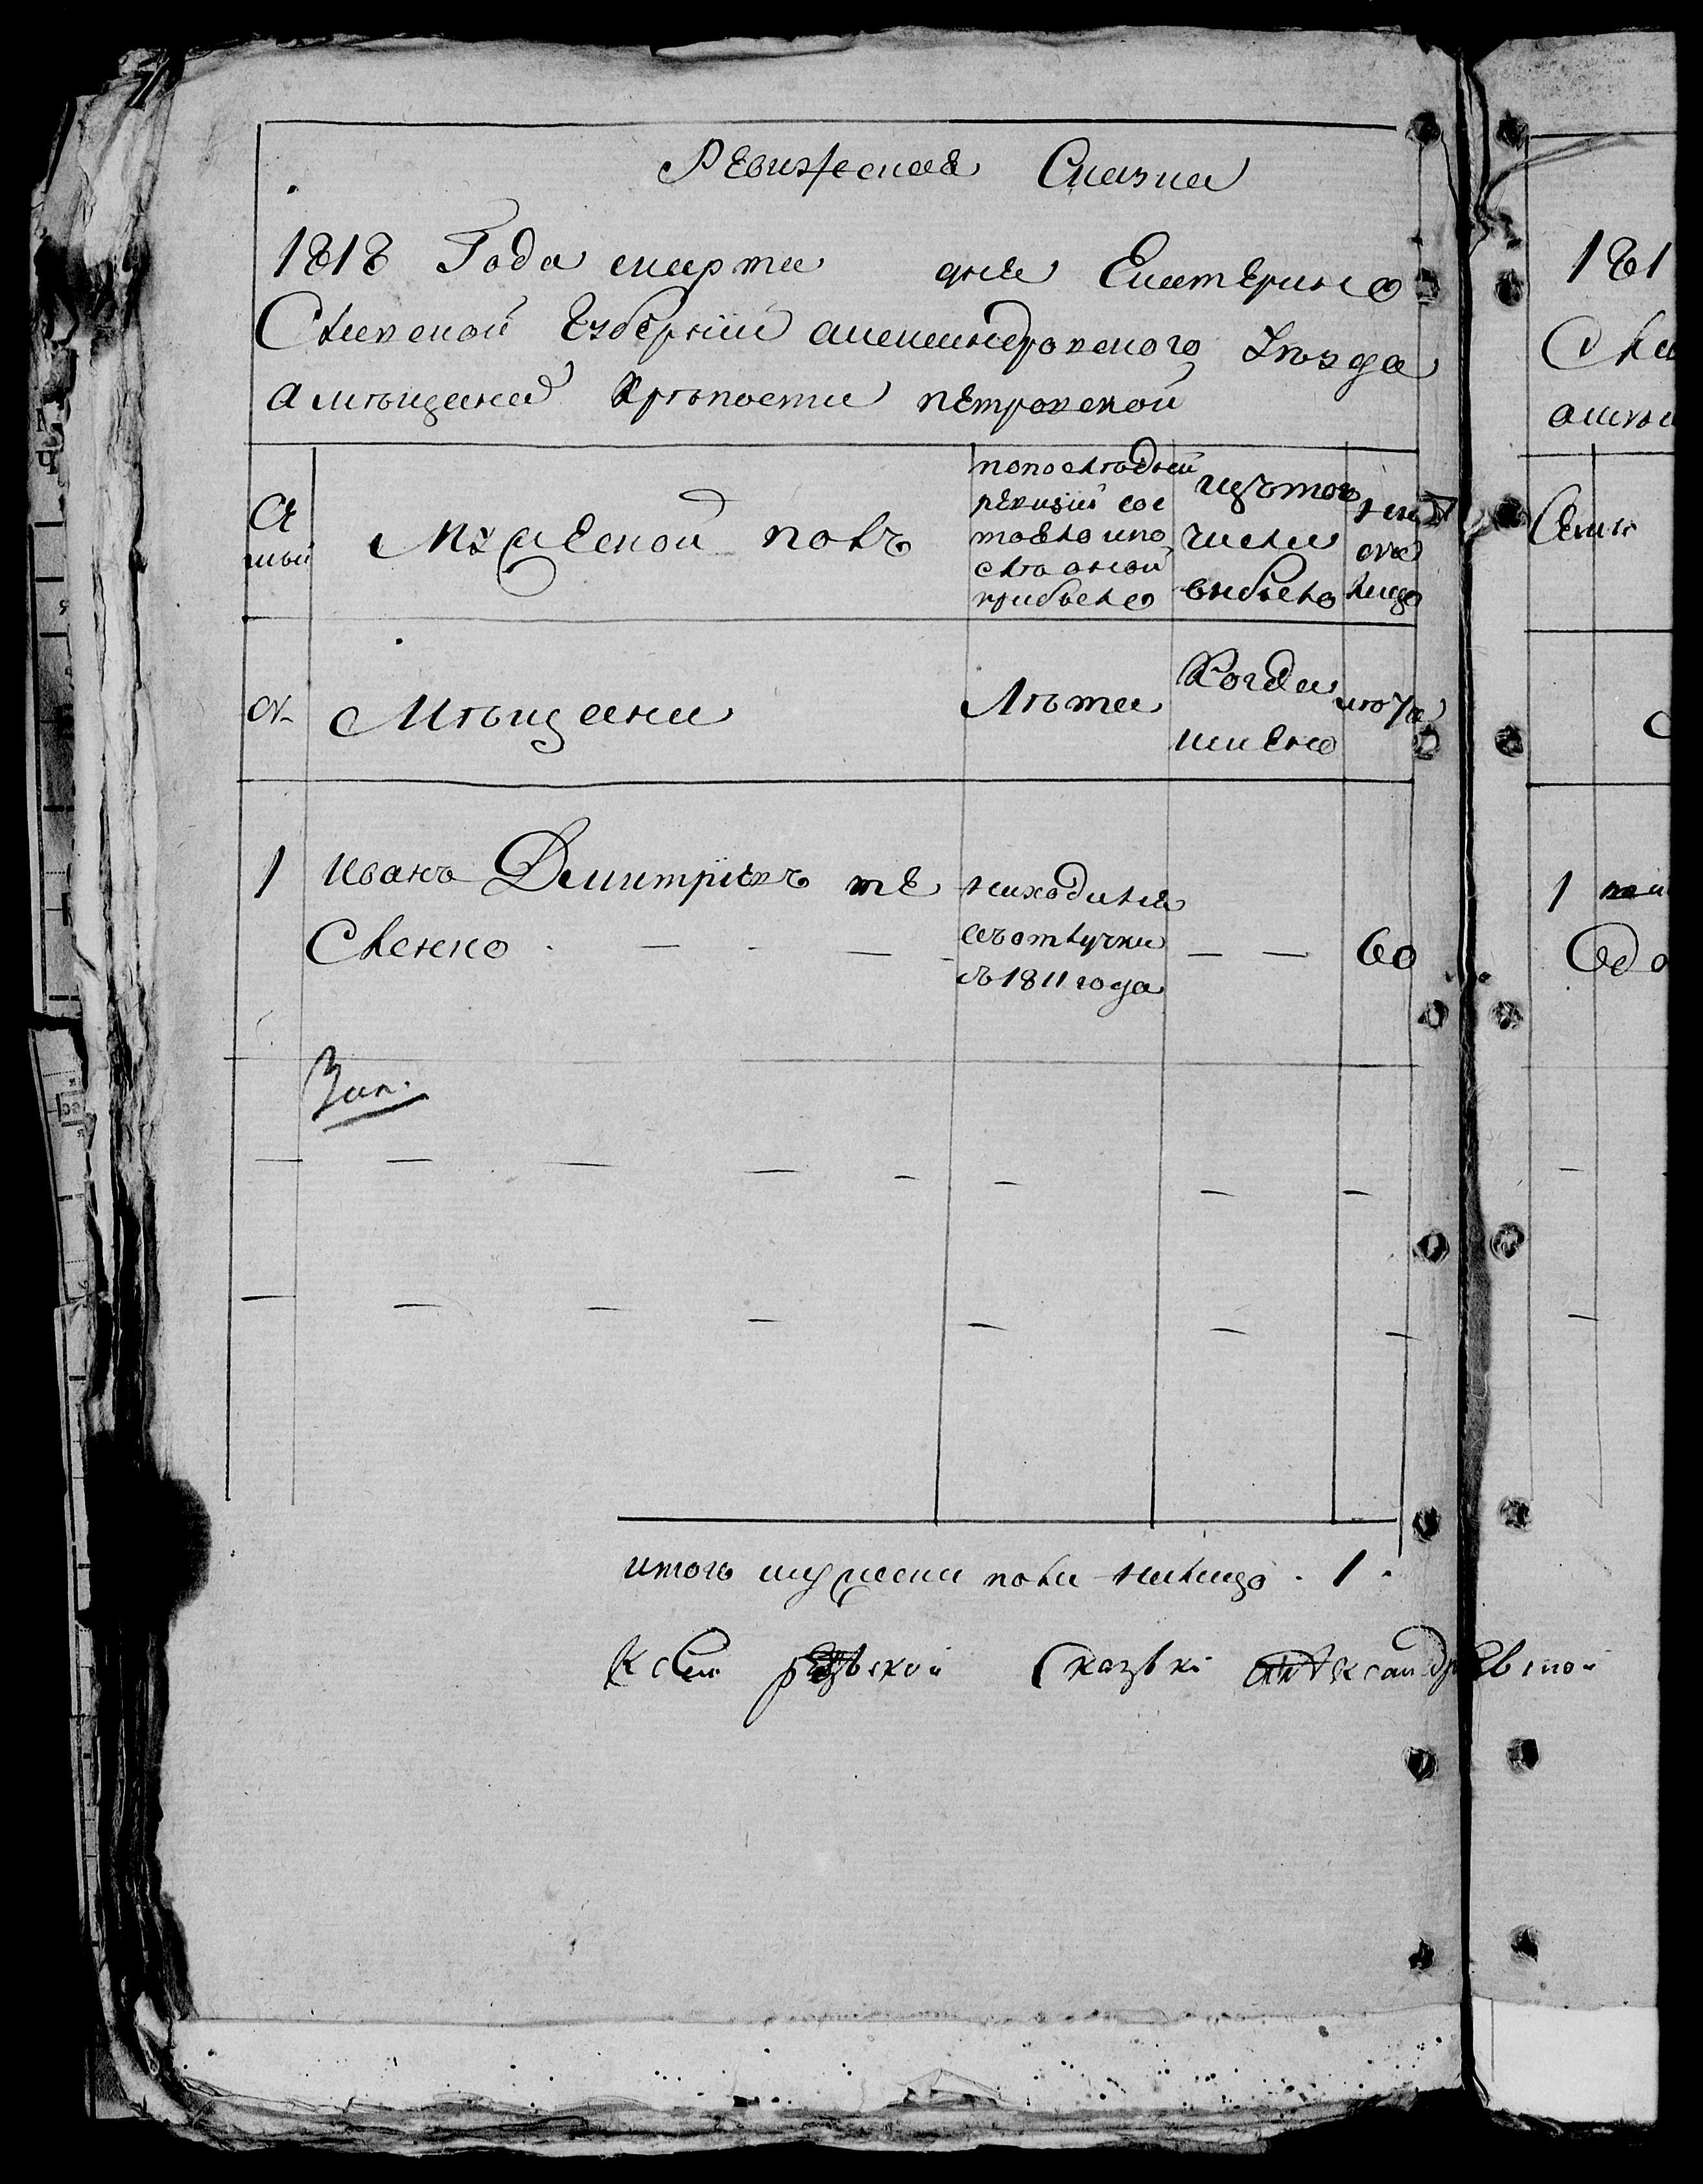 Ревижская Сказка
1818 Года марта дня Екатерино
Славской Губерний александровского Уезда
а мѣщане Крѣпости петровской
Се
мьи
Мужеской полъ
попослѣдней
ревизий сос
тояло ипо
слѣ оной
прибыло
изътого
числа
выбыло
ны
не на
лицо
№
Мѣщане
Лѣта
Когда
имянно
лѣта
1 Иванъ Дмитріевъ те
Сленко
находился
въотлучки
съ1811года
60
Зап.
итого мужеска пола налицо 1
К сей Сказки александрвской
181
Сла
Семьи
1